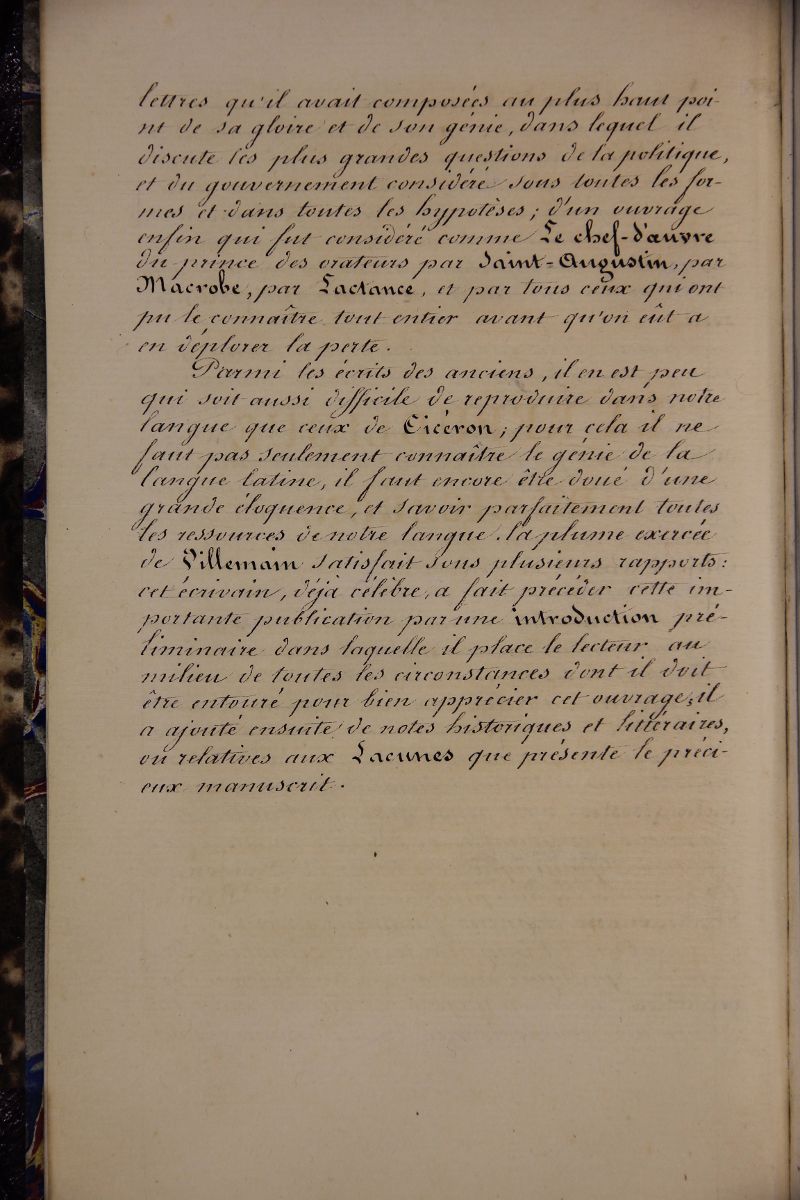 lettres qu'il avait composées au plus haut poi-
nt de sa gloire et de son génie, dans lequel il
discute les plus grandes questions de la politique,
et du gouvernement considéré sous toutes les for-
mes et dans toutes les hypotèses; d'un ouvrage
enfin qui fut considéré comme Le chef-d'auvre
du prince des orateurs par Saint-Augustin, par
Macrobe, par Lactance, et par tous ceux qui ont
pu le connaître tout entier avant qu'on eût a
en déplorer la perte.
Parmi les écrits des anciens, il en est peu
qui soit aussi difficile de reproduire dans notre
langue que ceux de Cicéron; pour cela il ne
faut pas seulement connaître le génie de la
langue latine, il faut encore être doué d'une
grande éloquence, et savoir parfaitement toutes
les ressources de notre langue. la plume exercée
de Villemain satisfait sous plusieurs rapports:
cet écrivain, déjà célèbre, a fait précéder cette im-
portante publication par une introduction pré-
liminaire dans laquelle il place le lecteur au
milieu de toutes les circonstances dont il doit
être entouré pour bien apprécier cet ouvrage; il
a ajouté ensuite de notes historiques et littéraires,
ou relatives aux Lacunes que présente le préci-
eux manuscrit.